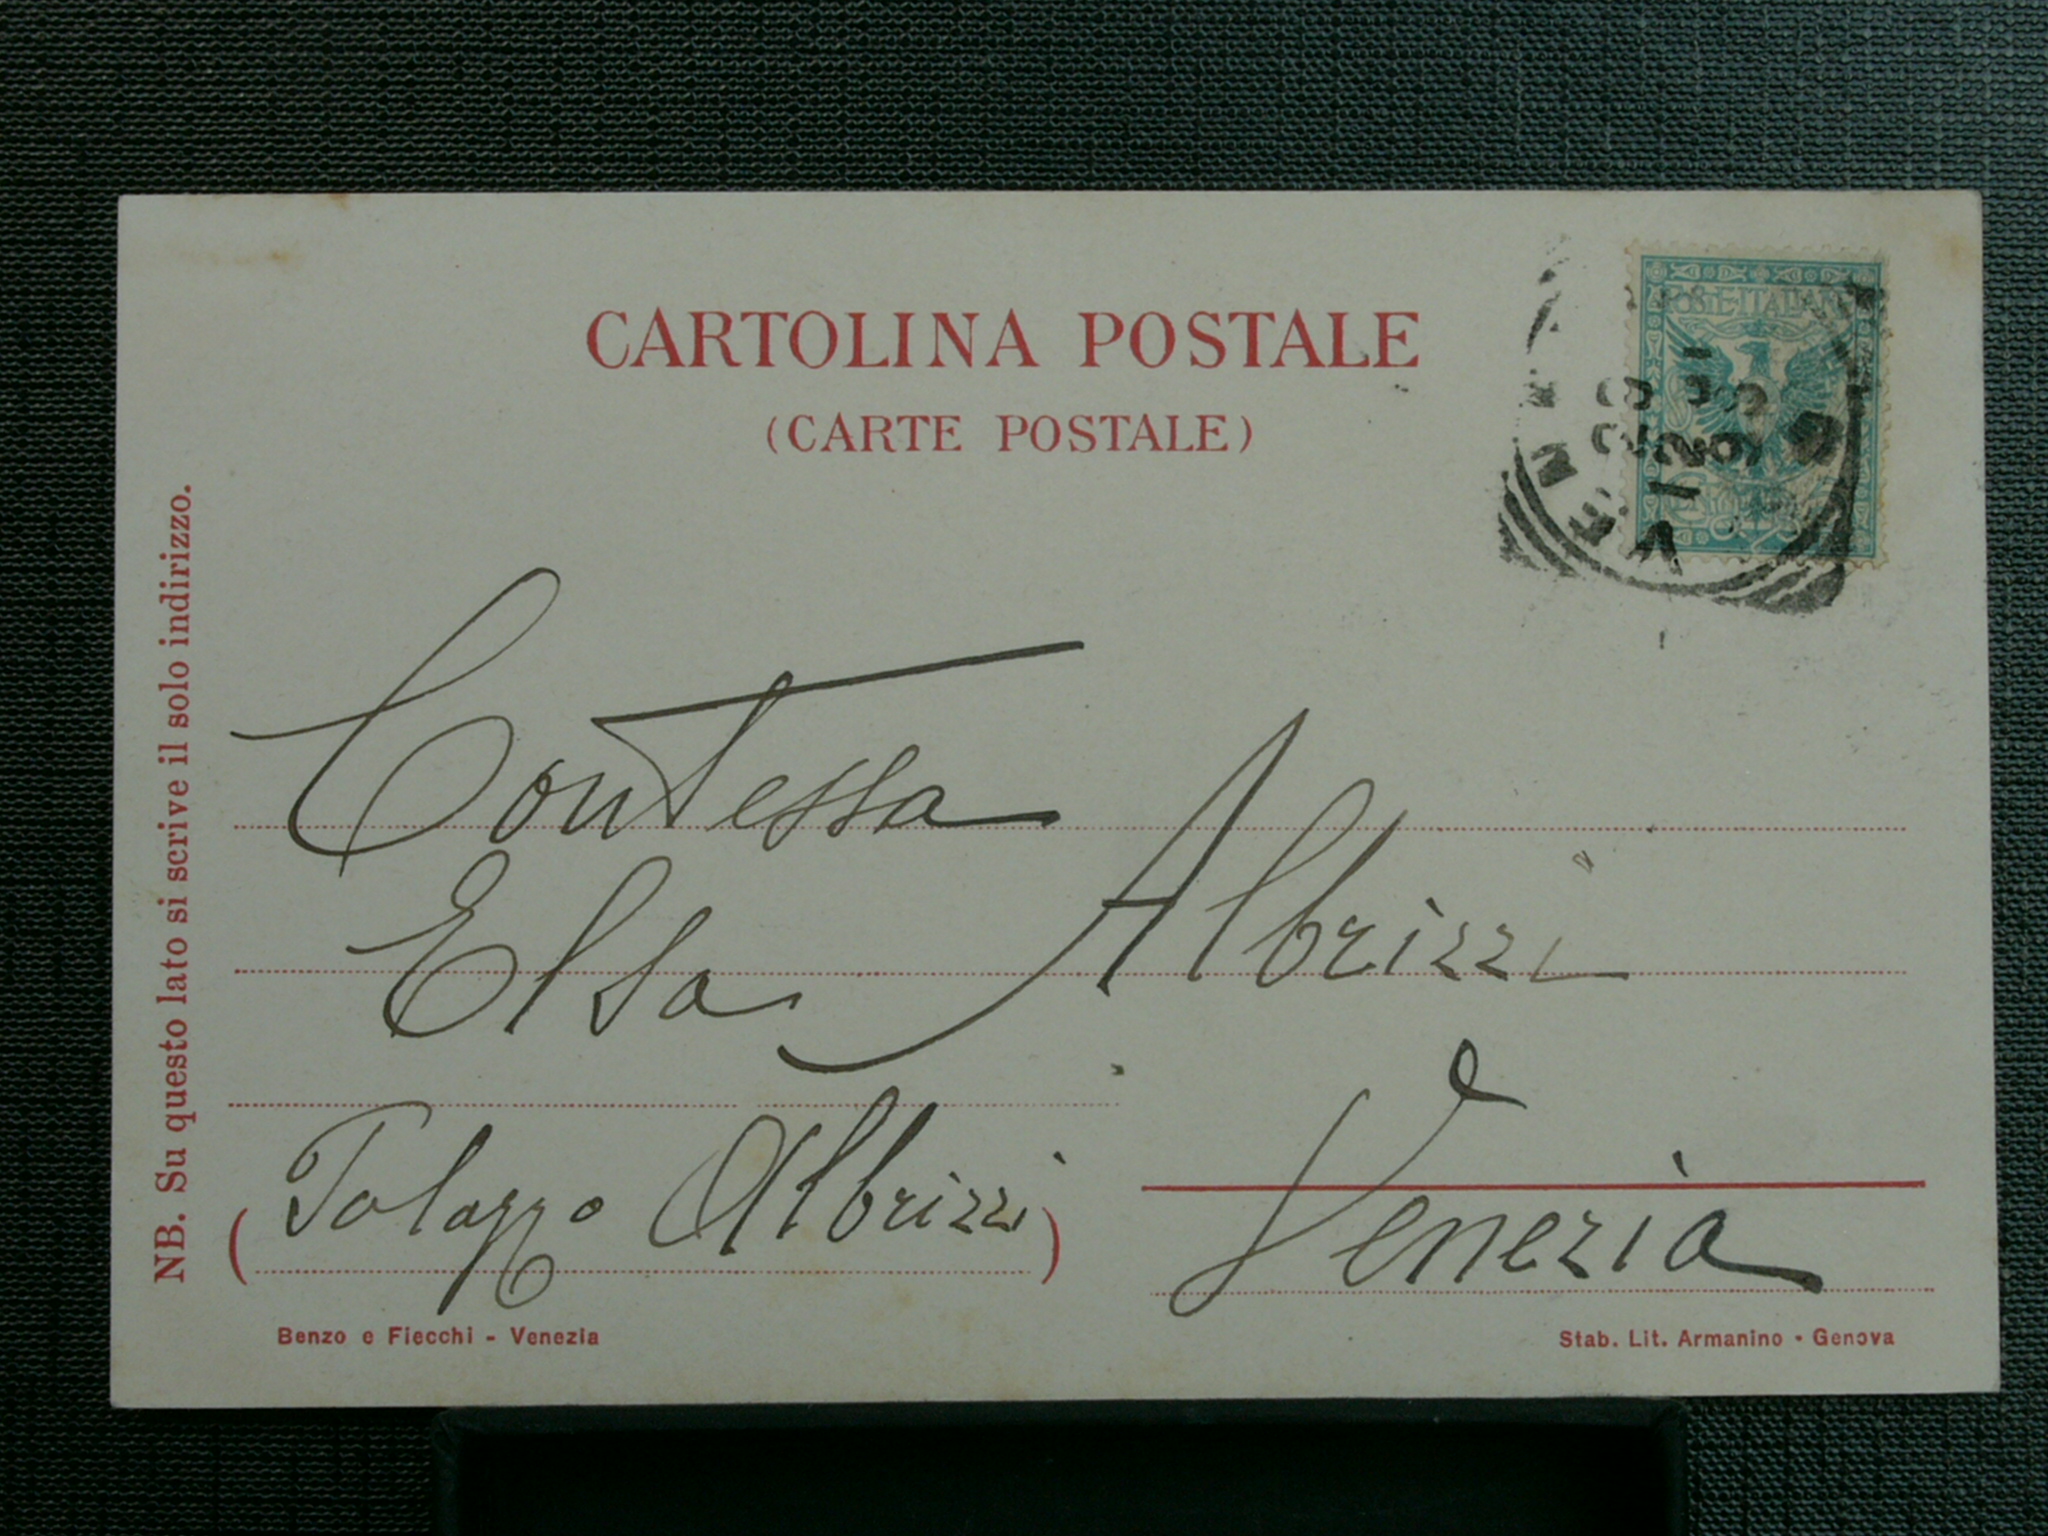 CARTOLINA POSTALE
(CARTE POSTALE)
POSTE ITALIANE
VENE
NB. Su questo lato si scrive il solo indirizzo.
Contessa
Elsa Albrizzi
(Palazzo Albrizzi)
Venezia
Benzo e Fiecchi - Venezia
Stab. Lit. Armanino - Genova